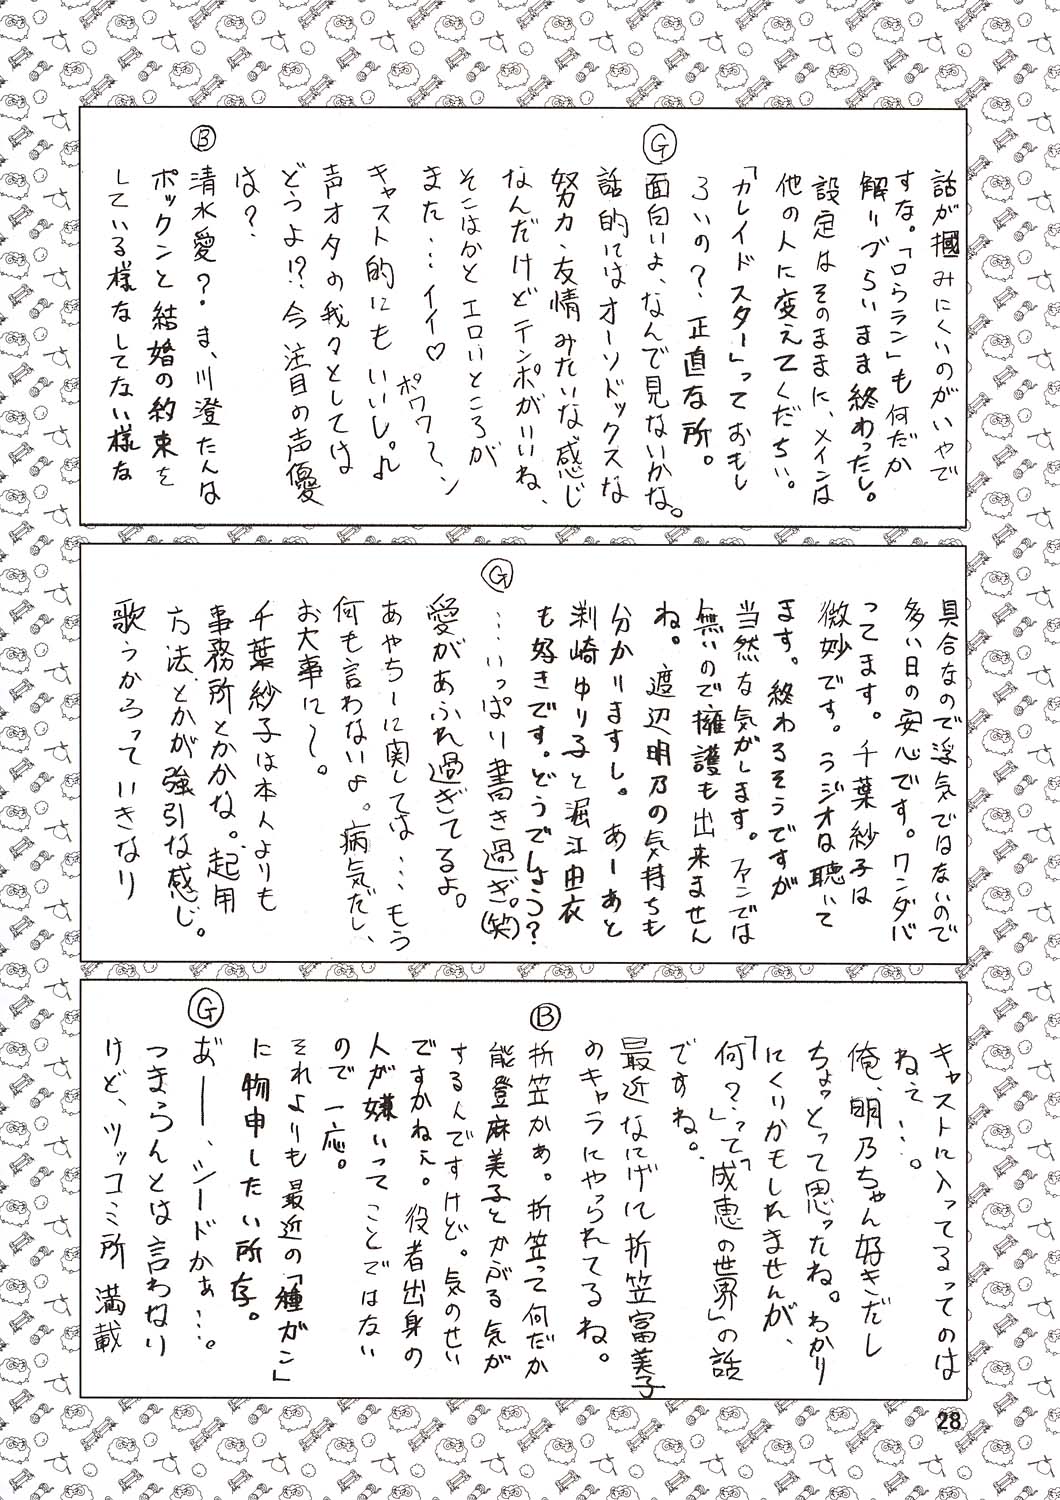 話が摑みにくいのがいやで
すな。「ロラン」も何だか
解りづらいまま終わったし。
設定はそのままに、メインは
他の人に変えてくだちい。
「カレイドスター」っておもし
ろいの？正直な所。
Ⓖ
面白いよ、なんで見ないかな。
話的にはオーソドックスな
努力・友情みたいな感じ
なんだけどテンポがいいね、
そこはかとエロいところが
また…イイ♡ポワワ～ン
キャスト的にもいいし。♪
声オタの我々としては
どうよ!?今注目の声優
は？
Ⓑ
清水愛？ま、川澄たんは
ボックンと結婚の約束を
している様なしてない様な
具合なので浮気ではないので
多い日の安心です。ワンダバ
ってます。千葉紗子は
微妙です。ラジオは聴いて
ます。終わるそうですが
当然な気がします。ファンでは
無いので擁護も出来ません
ね。渡辺明乃の気持ちも
分かりますし。あーあと
渕崎ゆり子と堀江由衣
も好きです。どうでしょう？
Ⓖ
…いっぱい書き過ぎ。(笑)
愛があふれ過ぎてるよ。
あやちーに関しては…もう
何も言わないよ。病気だし、
お大事に～。
千葉紗子は本人よりも
事務所とかかな。起用
方法とかが強引な感じ。
歌うからっていきなり
キャストに入ってるってのは
ねぇ…。
俺、明乃ちゃん好きだし
ちょっとって思ったね。わかり
にくいかもしれませんが、
「何？」って「成恵の世界」の話
ですね。
最近なにげに折笠富美子
のキャラにやられてるね。
Ⓑ
折笠かぁ。折笠って何だか
能登麻美子とかぶる気が
するんですけど。気のせい
ですかねぇ。役者出身の
人が嫌いってことではない
ので一応。
それよりも最近の「種ガン」
に物申したい所存。
Ⓖ
あ゛ー、シードかぁ…。
つまらんとは言わない
けど、ツッコミ所満載
28